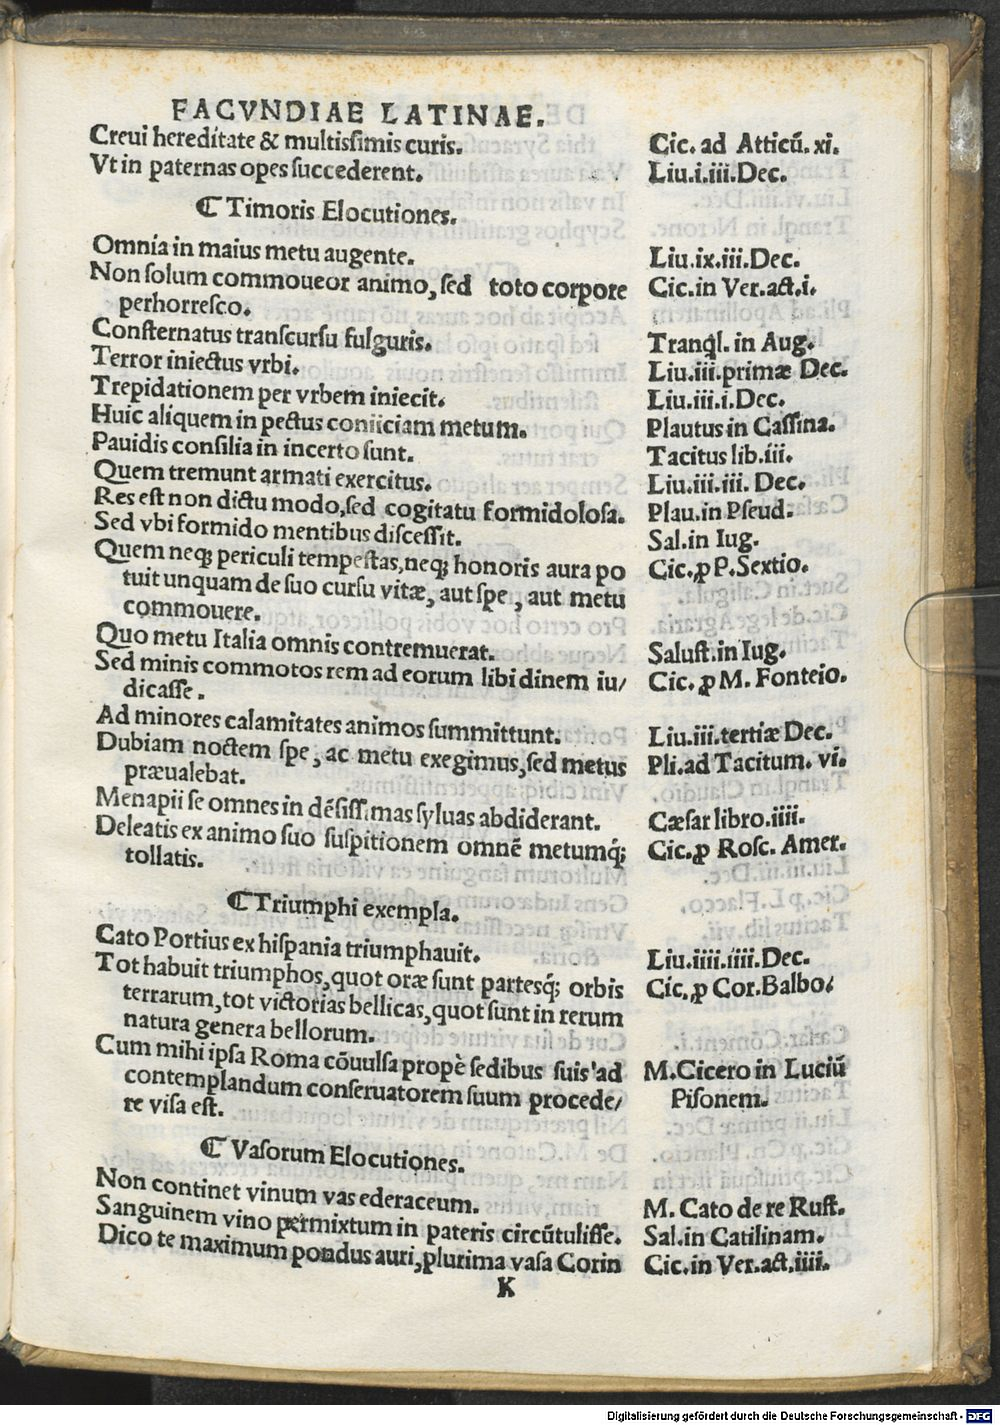 FACVNDIAE LATINAE.
Creui hereditate & multiſsimis curis. Cic. ad Atticū. xi.
Vt in paternas opes ſuccederent. Liu.i.iii.Dec.
⸿ Timoris Elocutiones.
Omnia in maius metu augente. Liu.ix.iii.Dec.
Non ſolum commoueor animo, ſed toto corpore Cic.in Ver.act.i.
perhorreſco.
Conſternatus tranſcurſu fulguris. Tranql. in Aug.
Terror iniectus vrbi. Liu.iii.primæ Dec.
Trepidationem per vrbem iniecit. Liu.iii.i.Dec.
Huic aliquem in pectus coniiciam metum. Plautus in Caſſina.
Pauidis conſilia in incerto ſunt. Tacitus lib.iii.
Quem tremunt armati exercitus. Liu.iii.iii. Dec.
Res eſt non dictu modo, ſed cogitatu formidoloſa. Plau.in Pſeud.
Sed vbi formido mentibus diſceſſit. Sal.in Iug.
Quem neqꝫ periculi tempeſtas, neqꝫ honoris aura po Cic.ꝓ P.Sextio.
tuit unquam de ſuo curſu vitæ, aut ſpe, aut metu
commouere.
Quo metu Italia omnis contremuerat. Saluſt.in Iug.
Sed minis commotos rem ad eorum libidinem iu/ Cic.ꝓ M. Fonteio.
dicaſſe.
Ad minores calamitates animos ſummittunt. Liu.iii.tertiæ Dec.
Dubiam noctem ſpe, ac metu exegimus, ſed metus Pli.ad Tacitum. vi.
præualebat.
Menapii ſe omnes in dēſiſſimas ſyluas abdiderant. Cæſar libro.iiii.
Deleatis ex animo ſuo ſuſpitionem omnē metumqꝫ Cic.ꝓ Roſc. Amer.
tollatis.
⸿ Triumphi exempla.
Cato Portius ex hiſpania triumphauit. Liu.iiii.iiii.Dec.
Tot habuit triumphos, quot oræ ſunt partesqꝫ orbis Cic.ꝓ Cor.Balbo.
terrarum, tot victorias bellicas, quot ſunt in rerum
natura genera bellorum.
Cum mihi ipſa Roma cōuulſa propè ſedibus ſuis ad M.Cicero in Luciū
contemplandum conſeruatorem ſuum procede/ Piſonem.
re viſa eſt.
⸿ Vaſorum Elocutiones.
Non continet vinum vas ederaceum. M. Cato de re Ruſt.
Sanguinem vino permixtum in pateris circūtuliſſe. Sal.in Catilinam.
Dico te maximum pondus auri, plurima vaſa Corin Cic.in Ver.act.iiii.
K
Digitalisierung gefördert durch die Deutsche Forschungsgemeinschaft - DFG